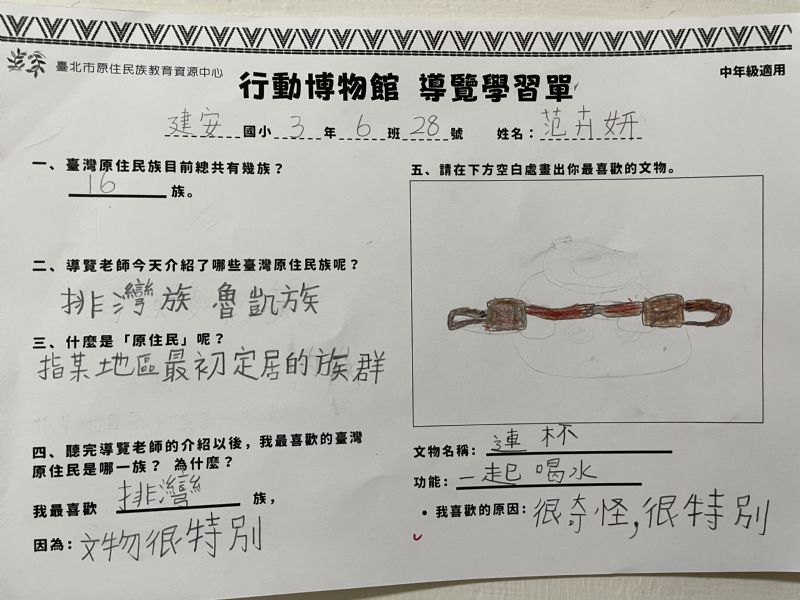 臺北市原住民族教育資源中心
行動博物館 導覽學習單
中年級適用
建安國小3年6班28號 姓名：范卉妍
一、臺灣原住民族目前總共有幾族？
16族。
二、導覽老師今天介紹了哪些臺灣原住民族呢？
排灣族 魯凱族
三、什麼是「原住民」呢？
指某地區最初定居的族群
四、聽完導覽老師的介紹以後，我最喜歡的臺灣
原住民是哪一族？ 為什麼？
我最喜歡 排灣 族，
因為：文物很特別
五、請在下方空白處畫出你最喜歡的文物。
文物名稱：連杯
功能：一起喝水
• 我喜歡的原因：很奇怪，很特別